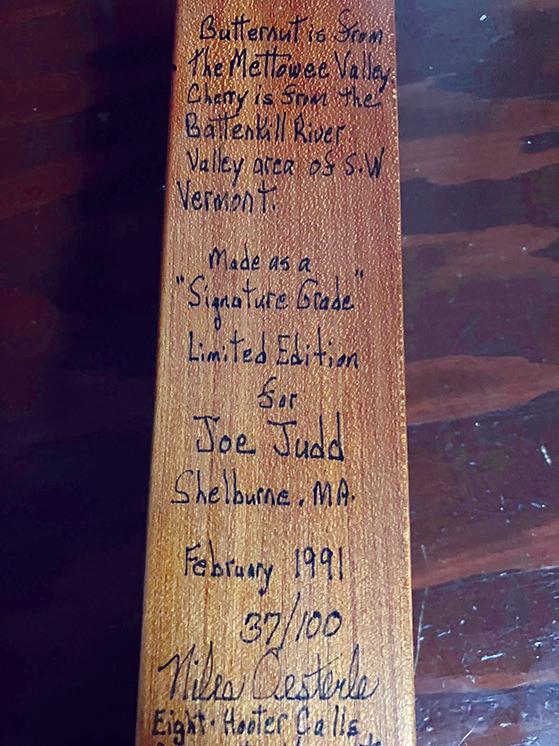 Butternut is from
the Mettowee Valley
Cherry is from the
Battenkill River
Valley area of S.W
Vermont.
Made as a
"Signature Grade"
Limited Edition
for
Joe Judd
Shelburne, MA.
February 1991
37/100
Niles Oesterle
Eight-Hooter Calls